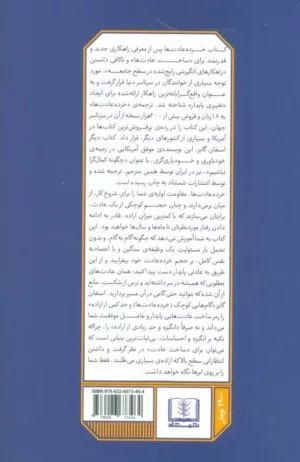 کتاب خرده‌عادت‌ها پس از معرفی راهکاری جدید و
قدرتمند برای «ساخت عادت‌ها» و ناکافی دانستن
«راهکارهای انگیزشی رایج‌شده در سطح جامعه»، مورد
توجه بسیاری از خوانندگان در سرتاسر دنیا قرار گرفت و به
عنوان واقع‌گرایانه‌ترین راهکار ارائه‌شده برای ایجاد
«تغییری پایدار» شناخته شد. ترجمه‌ی «خرده‌عادت‌ها»
به ۱۸ زبان و فروش بیش از ۲۰۰ هزار نسخه از آن در سراسر
جهان، این کتاب را در رده‌ی پرفروش‌ترین کتاب‌ها در
آمریکا و بسیاری از کشورهای دیگر، قرار داد. کتاب دیگر
استفان گایز، این نویسنده‌ی موفق آمریکایی - در زمینه‌ی
خودباوری و خودیاری‌گری، با عنوان «چگونه کمال‌گرا
نباشیم»، نیز در ایران توسط همین مترجم، ترجمه شده و
توسط انتشارات شمشاد به چاپ رسیده است.
خرده‌عادت‌ها، مقاومت اولیه‌ی شما را برای شروع کار، از
میان برمی‌دارند و چنان حجم کوچکی از یک عادت،
برایتان می‌سازند که با کمترین میزان اراده، قادر به ادامه
دادن رفتار موردنظرتان تا ماه‌ها و سال‌ها خواهید بود. این
کتاب به شما آموزش می‌دهد که چگونه گام به گام، و بدون
تحمل بار مسئولیت یک وظیفه‌ی سنگین و با اعتماد به
نفس کامل، بر حجم خرده‌عادت خود بیفزایید و از این
طریق به عادتی پایدار دست پیدا کنید؛ همان عادت‌های
مطلوبی که همیشه در سر داشته‌اید و ترس از شکست، مانع
از آن شده که بتوانید حتی گامی در آن مسیر بردارید. استفان
گایز «گام‌هایی کوچک (خرده‌عادت‌ها) و حد کمی از اراده»
را رمز ساخت عادت‌هایی پایدار و عامل موفقیت شما
می‌داند و نه صرفاً «انگیزه و حد زیادی از اراده» را، چراکه
تکیه بر انگیزه و احساسات، بی‌ثبات‌ترین پایه‌ای است که
می‌توان برای «ساخت عادت» در نظر گرفت و داشتن
انتظاراتی سطح بالا که اراده‌ی بسیاری می‌طلبند، فقط شما
را بر روی ابرها نگاه خواهد داشت.